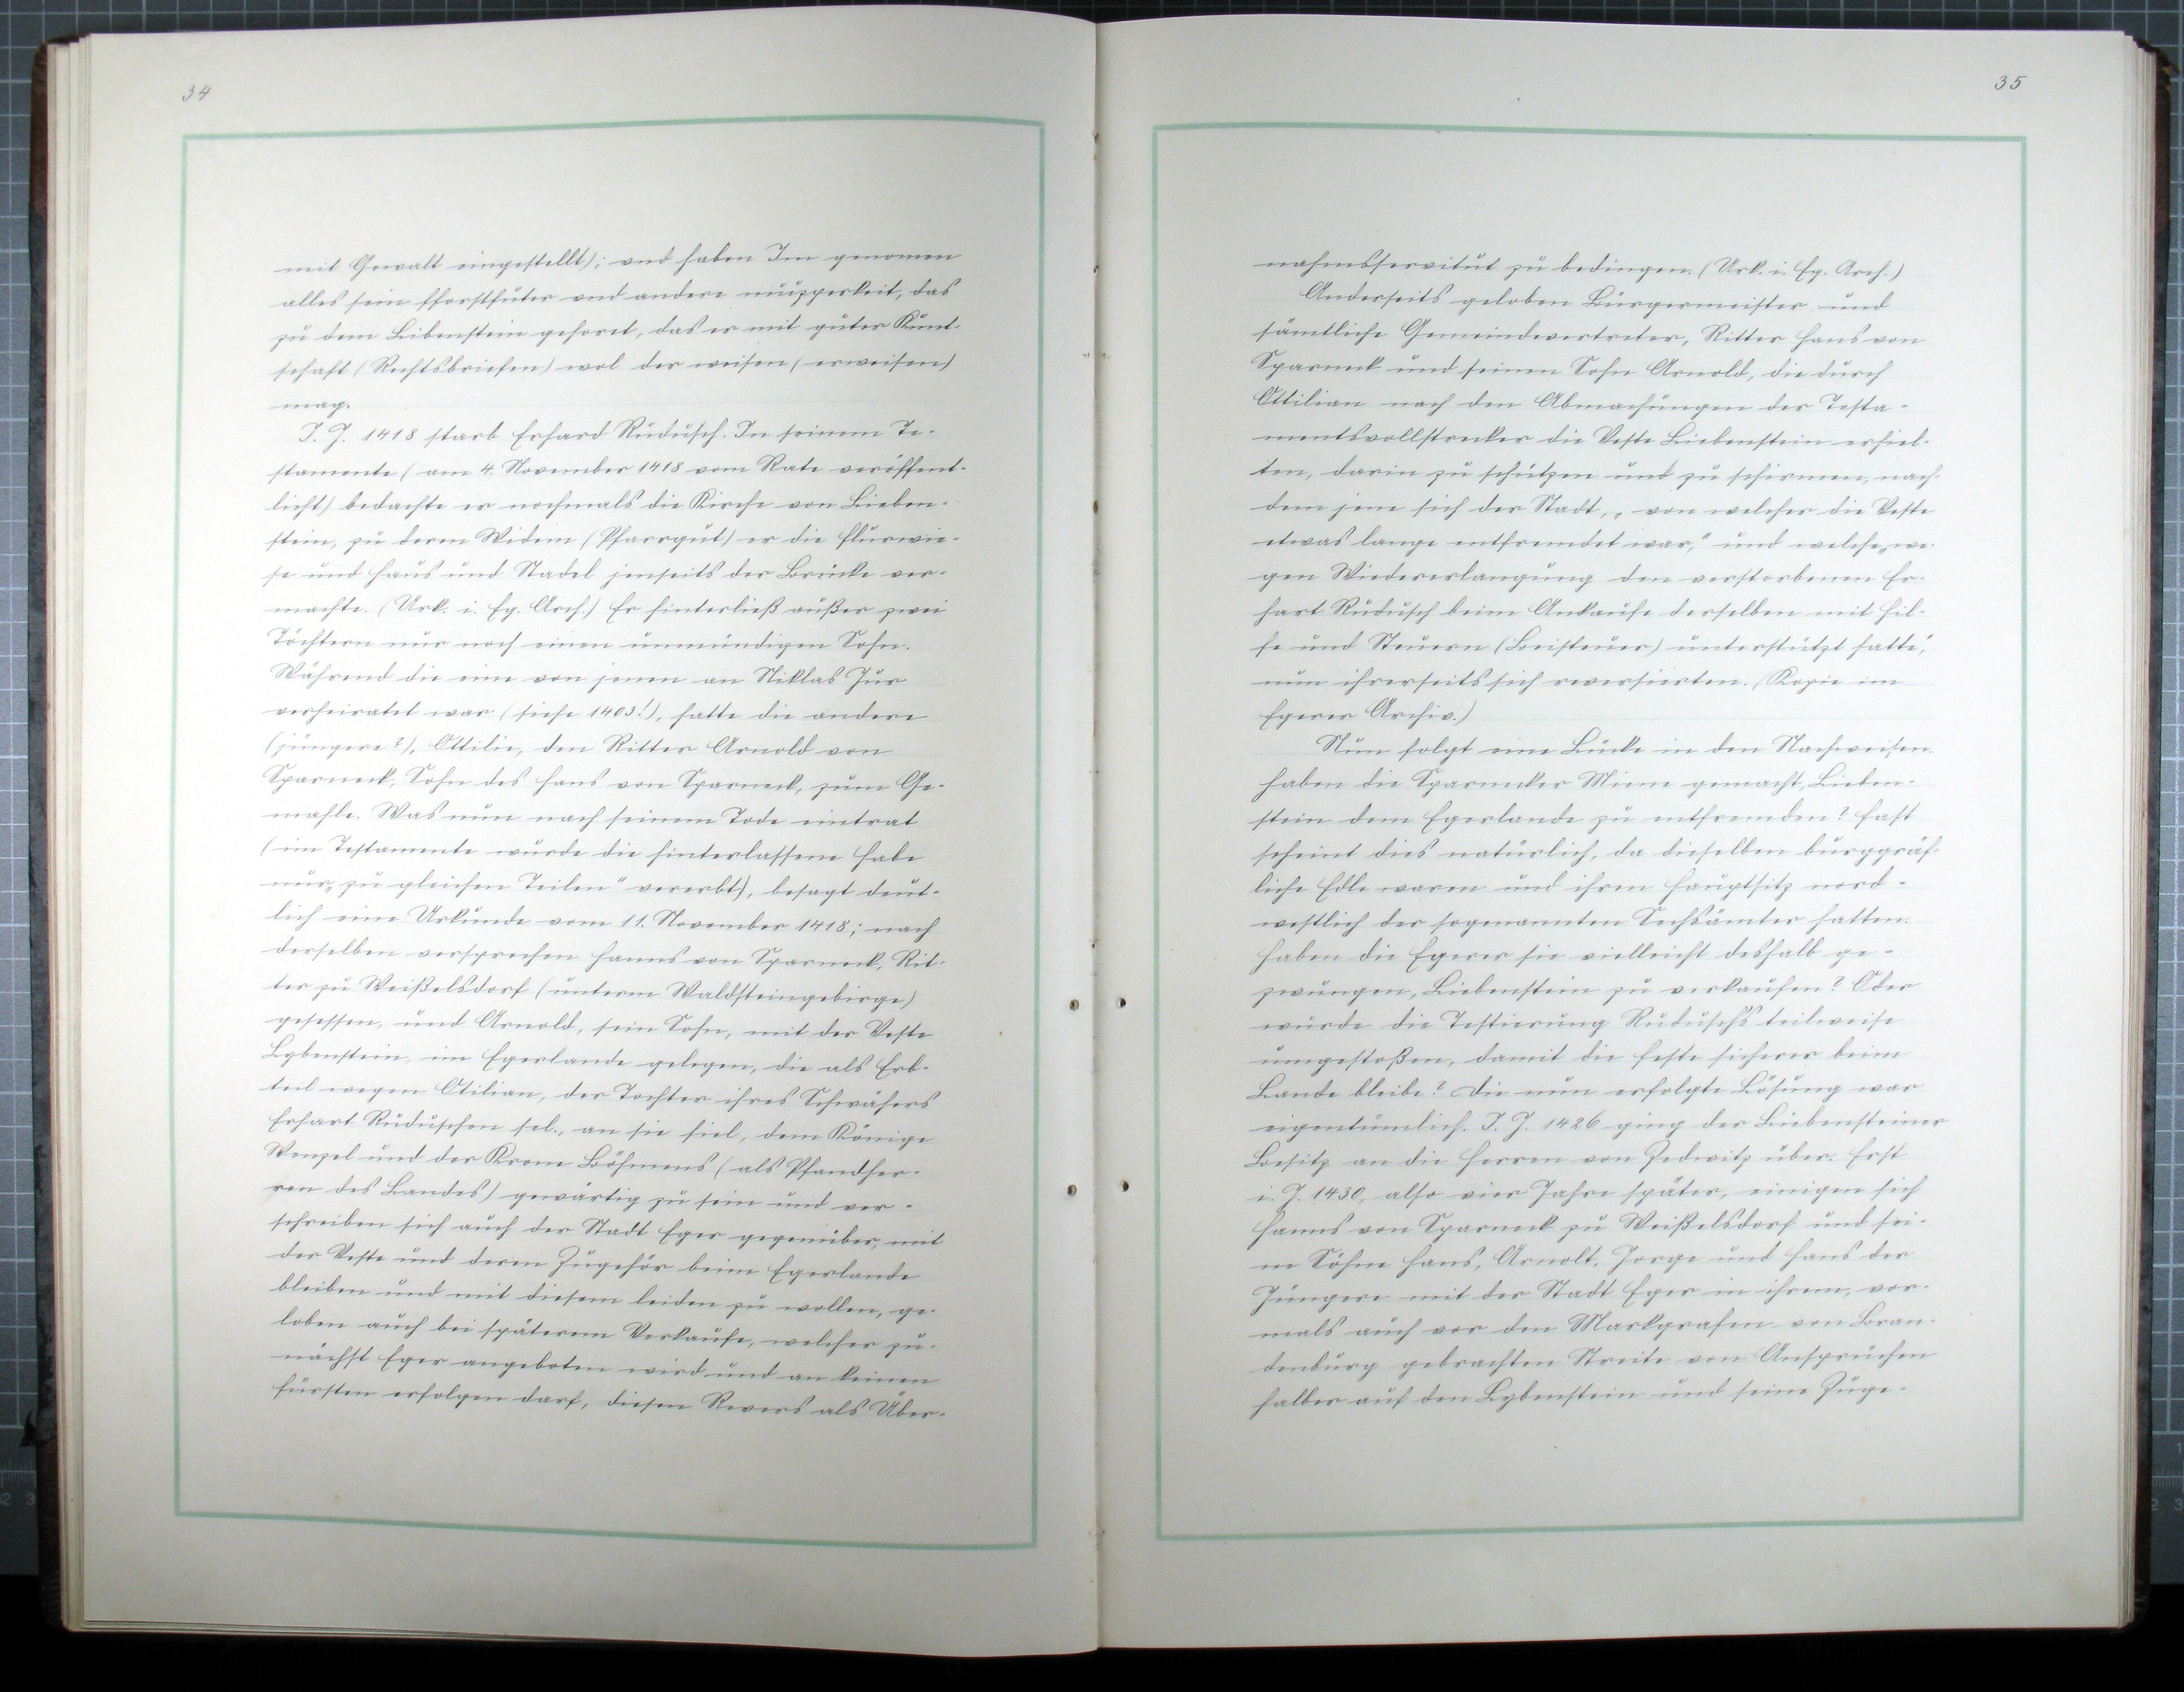 34
mit Gewalt eingestellt); vnd haben Im genomen
alles sein fforstfuter vnd andere nuczperkeit, das
zu dem Libenstein gehoret, das er mit guter Kunt-
schaft (Rechtsbriefen) wol der weisen (erweisen)
mag.
I. J. 1418 starb Erhard Rudusch. In seinem Te-
stamente (am 4. November 1418 vom Rate veröffent-
licht) bedachte er nochmals die Kirche von Lieben-
stein, zu deren Widem (Pfarrgut) er die Flurwie-
se und Haus und Stadel jenseits der Brücke ver-
machte. (Urk. i. Eg. Arch.) Er hinterließ außer zwei
Töchtern nur noch einen unmündigen Sohn.
Während die eine von jenen an Niklas Jur
verheiratet war (siehe 1403!), hatte die andere
(jüngere?), Ottilie, den Ritter Arnold von
Sparneck, Sohn des Hans von Sparneck, zum Ge-
mahle. Was nun nach seinem Tode eintrat
(im Testamente wurde die hinterlassene Habe
nur „zu gleichen Teilen" vererbt), besagt deut-
lich eine Urkunde vom 11. November 1418; nach
derselben versprechen Hanns von Sparneck, Rit-
ter zu Weißelsdorf (unterm Waldsteingebirge)
gesessen, und Arnold, sein Sohn, mit der Veste
Lybenstein, im Egerlande gelegen, die als Erb-
teil wegen Otilian, der Tochter ihres Schwähers
Erhart Ruduschen sel., an sie fiel, dem Könige
Wenzel und der Krone Böhmens (als Pfandher-
ren des Landes) gewärtig zu sein und ver-
schreiben sich auch der Stadt Eger gegenüber, mit
der Veste und deren Zugehör beim Egerlande
bleiben und mit diesem leiden zu wollen, ge-
loben auch bei späterem Verkaufe, welcher zu-
nächst Eger angeboten wird und an keinen
Fürsten erfolgen darf, diesen Revers als Über-
35
nahmsservitut zu bedingen. (Urk. i. Eg. Arch.)
Anderseits geloben Bürgermeister und
sämtliche Gemeindevertreter, Ritter Hans von
Sparneck und seinen Sohn Arnold, die durch
Ottilian nach den Abmachungen der Testa-
mentsvollstrecker die Veste Liebenstein erhiel-
ten, darin zu schützen und zu schirmen, nach-
dem jene sich der Stadt, „von welcher die Veste
etwas lange entfremdet war," und welche „we-
gen Wiedererlangung den verstorbenen Er-
hart Rudusch beim Ankaufe derselben mit Hil-
fe und Steuern (Beisteuer) unterstützt hatte,"
nun ihrerseits sich reversierten. (Kopie im
Egerer Archiv.)
Nun folgt eine Lücke in den Nachweisen.
Haben die Sparnecker Miene gemacht, Lieben-
stein dem Egerlande zu entfremden? Fast
scheint dies natürlich, da dieselben burggräf-
liche Edle waren und ihren Hauptsitz nord-
westlich der sogenannten Sechsämter hatten.
Haben die Egerer sie vielleicht deshalb ge-
zwungen, Liebenstein zu verkaufen? Oder
wurde die Testierung Rudusch's teilweise
umgestoßen, damit die Feste sicherer beim
Lande bleibe? Die nun erfolgte Lösung war
eigentümlich. I. J. 1426 ging der Liebensteiner
Besitz an die Herren von Zedwitz über. Erst
i. J. 1430, also vier Jahre später, einigen sich
Hanns von Sparneck zu Weißelsdorf und sei-
ne Söhne Hans, Arnolt, Jorge und Hans der
Jüngere mit der Stadt Eger in ihrem, vor-
mals auch vor den Markgrafen von Bran-
denburg gebrachten Streite von Ansprüchen
halber auf den Lybenstein und seine Zuge-